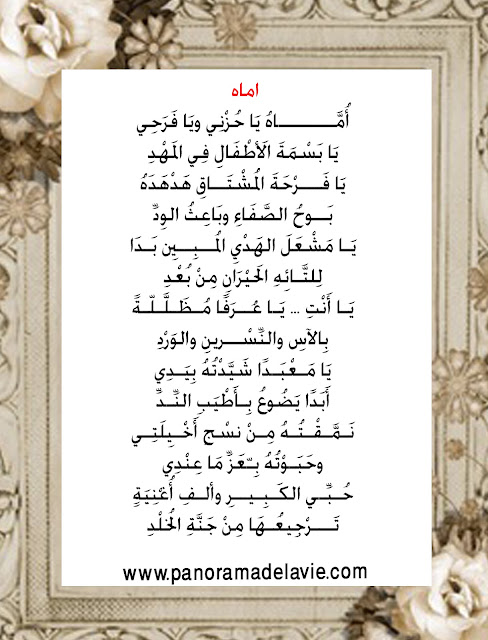 اماه
أُمَّـــــــاهُ يَا حُزْنِي ويَا فَرَحِي
يَا بَسْمَةَ الَأطْفَالِ فِي المَهْدِ
يَا فَـــرْحَةَ المُشْتَــاقِ هَدْهَدَهُ
بَــوحُ الصَّفَاءِ وبَاعِثُ الوِدِّ
يَــا مَشْعَلَ الهَدْيِ المُــبِــينِ بَــدَا
لِلتَّـائِـهِ الحَيْرَانِ مِنْ بُعْدِ
يَــا أَنْتِ ... يَــا غُــرَفًا مُـظَـلَّـلَـةً
بِالآسِ والنِّسْـرينِ والوَرْدِ
يَا مَـعْـبَـدًا شَيَّدْتُهُ بِيَـدِي
أَبَدًا يَضُوعُ بِـأَطْيَبِ النَّـدِّ
نَـمَّـقْـتُـهُ مِـنْ نسْـجِ أَخْـيِـلَتِــي
وحَبَـوْتُهُ بِـعَزِّ مَا عِنْدِي
حُـبِّـي الكَـبِـيـرِ وألـفِ أُغْـنِيَةٍ
تَـــرْجِيعُـهَـا مِنْ جَنَّةِ الخُلْدِ
www.panoramadelavie.com